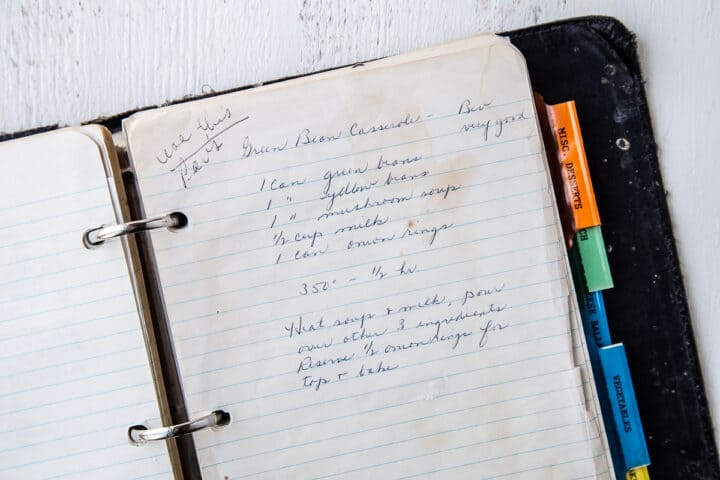 use this
Green Bean Casserole - Bev
very good
1 can green beans
1 " yellow beans
1 " mushroom soup
1/2 cup milk
1 can onion rings
350° - 1/2 hr.
Heat soup + milk, pour
over other 3 ingredients
Reserve 1/2 onion rings for
top + bake
MISC. DESSERTS
VEGETABLES